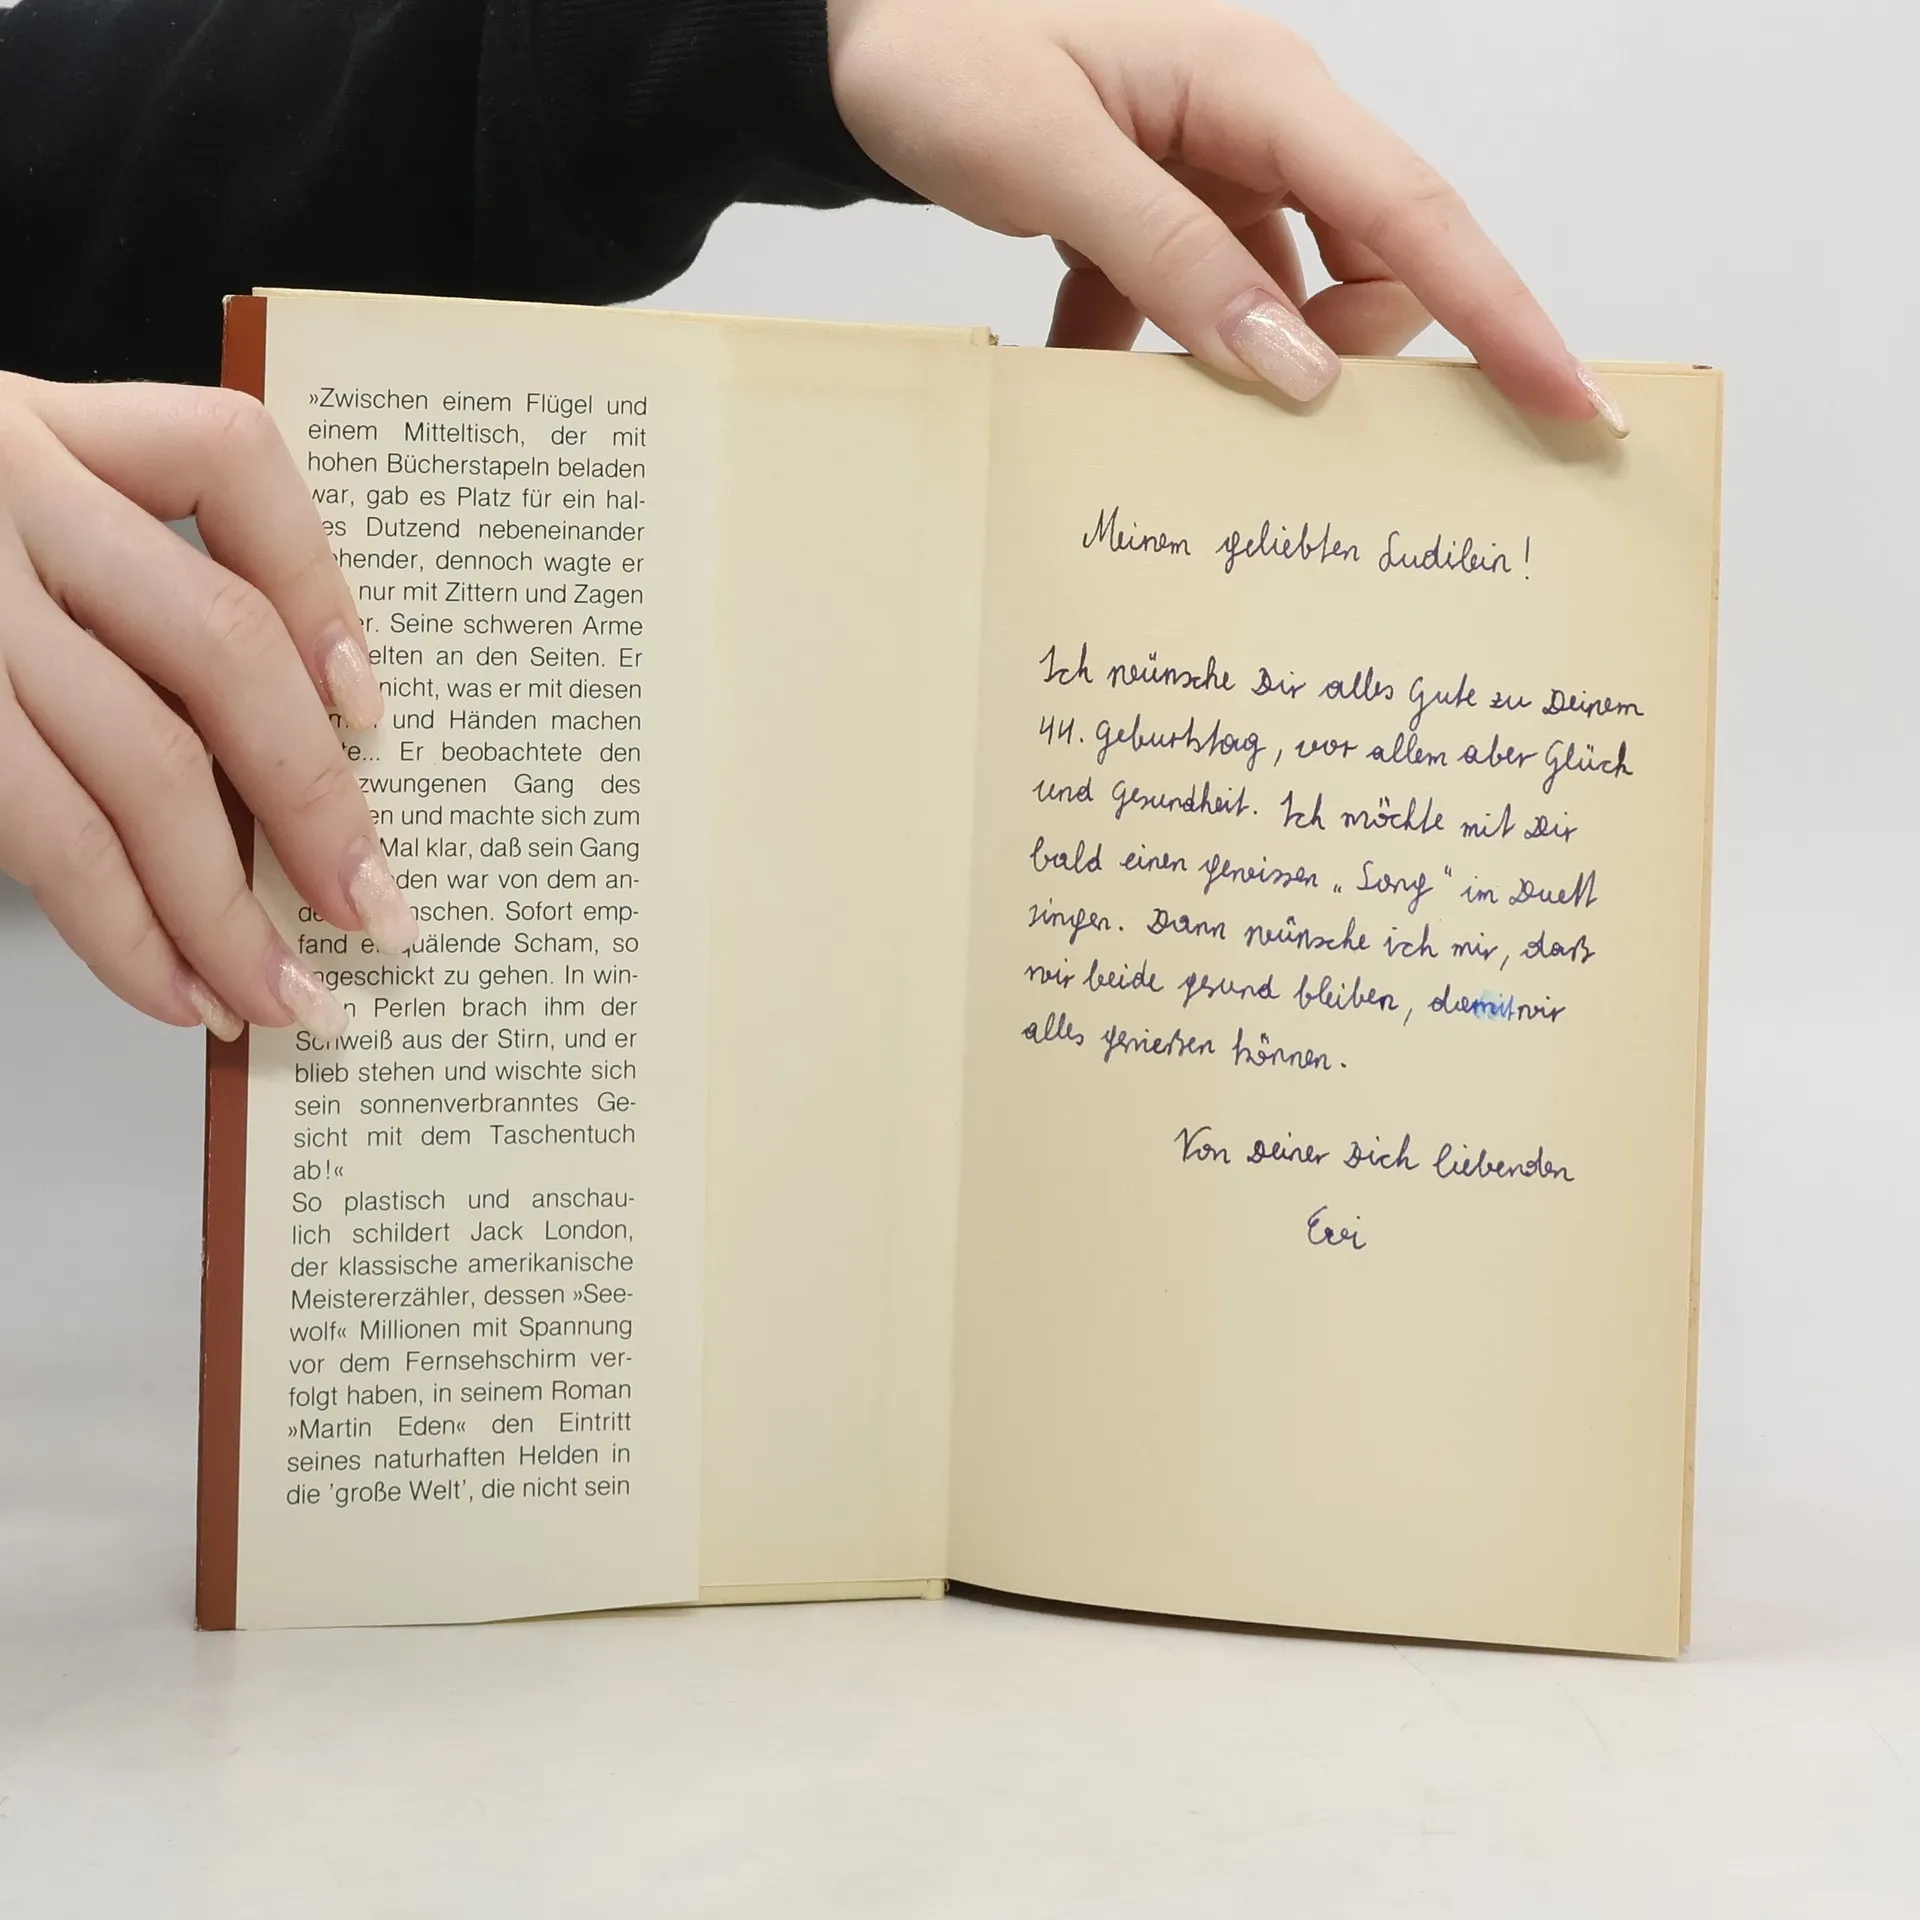 »Zwischen einem Flügel und
einem Mitteltisch, der mit
hohen Bücherstapeln beladen
war, gab es Platz für ein hal-
es Dutzend nebeneinander
hender, dennoch wagte er
nur mit Zittern und Zagen
er. Seine schweren Arme
elten an den Seiten. Er
nicht, was er mit diesen
und Händen machen
te... Er beobachtete den
zwungenen Gang des
en und machte sich zum
Mal klar, daß sein Gang
den war von dem an-
de nschen. Sofort emp-
fand e quälende Scham, so
ngeschickt zu gehen. In win-
n Perlen brach ihm der
Schweiß aus der Stirn, und er
blieb stehen und wischte sich
sein sonnenverbranntes Ge-
sicht mit dem Taschentuch
ab!«
So plastisch und anschau-
lich schildert Jack London,
der klassische amerikanische
Meistererzähler, dessen »See-
wolf« Millionen mit Spannung
vor dem Fernsehschirm ver-
folgt haben, in seinem Roman
»Martin Eden« den Eintritt
seines naturhaften Helden in
die 'große Welt', die nicht sein
Meinem geliebten Ludilein!
Ich wünsche Dir alles Gute zu Deinem
44. Geburtstag, vor allem aber Glück
und Gesundheit. Ich möchte mit Dir
bald einen gewissen „Song" im Duett
singen. Dann wünsche ich mir, daß
wir beide gesund bleiben, damit wir
alles genießen können.
Von Deiner Dich liebenden
Evi